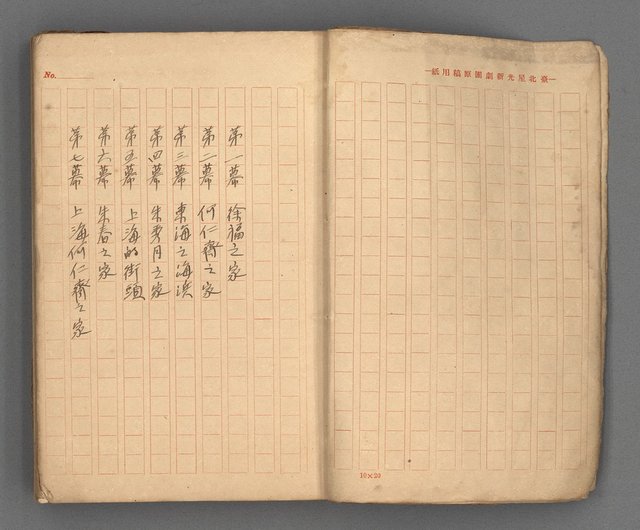 臺北星光新劇團原稿用紙
10×20
No.
第一幕 徐福之家
第二幕 何仁齋之家
第三幕 東海之海浜
第四幕 朱秀月之家
第五幕 上海的街頭
第六幕 朱春之家
第七幕 上海何仁齋之家